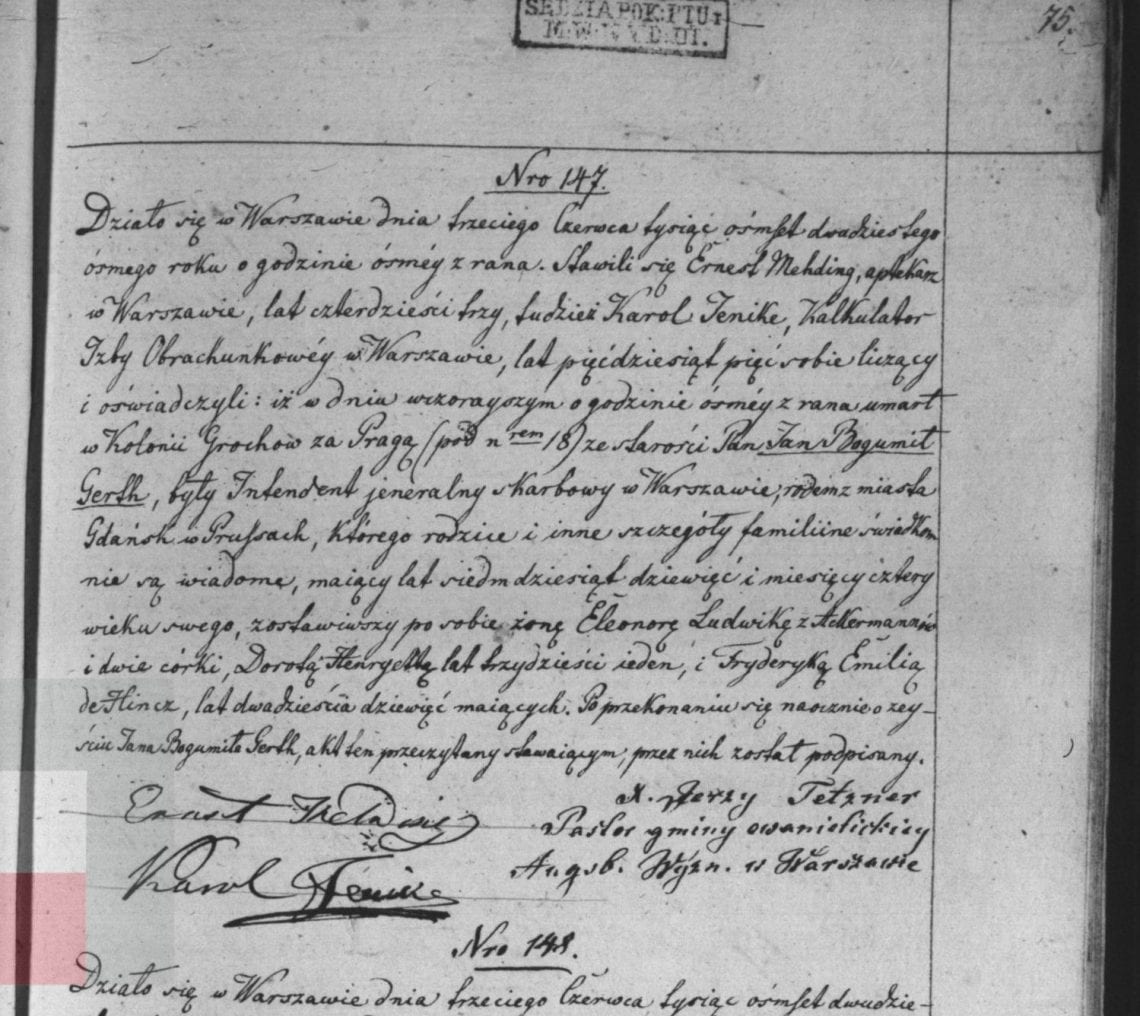 SĘDZIA POK: PTU:
M. W. W. D. III.
75.
Nro 147.
Działo się w Warszawie dnia trzeciego Czerwca tysiąc ośmset dwudziestego
ósmego roku o godzinie ósméy z rana. Stawili się Ernest Mehding, aptekarz
w Warszawie, lat czterdzieści trzy, tudzież Karol Jenike, Kalkulator
Izby Obrachunkowéy w Warszawie, lat pięćdziesiąt pięć sobie liczący
i oświadczyli: iż w dniu wczorayszym o godzinie ósméy z rana umarł
w Kolonii Grochów za Pragą (pod nrem 18) ze starości Pan Jan Bogumił
Gerth, były Intendent jeneralny skarbowy w Warszawie, rodem z miasta
Gdańsk w Prussach, którego rodzice i inne szczegóły familiine świadkom
nie są wiadome, maiący lat siedmdziesiąt dziewięć i miesięcy cztery
wieku swego, zostawiwszy po sobie żonę Eleonorę Ludwikę z Ackermannów
i dwie córki, Dorotą Henryettą lat trzydzieści ieden, i Fryderyką Emilią
de Hincz, lat dwadzieścia dziewięć maiących. Po przekonaniu się naocznie o zey-
ściu Jana Bogumiła Gerth, akt ten przeczytany stawaiącym, przez nich został podpisany.
Ernst Mehding
X. Jerzy Tetzner
Pastor gminy ewanielickiey
Karol Jenike
Augsb. Wyzn. w Warszawie
Nro 148.
Działo się w Warszawie dnia trzeciego Czerwca tysiąc ośmset dwudzie-